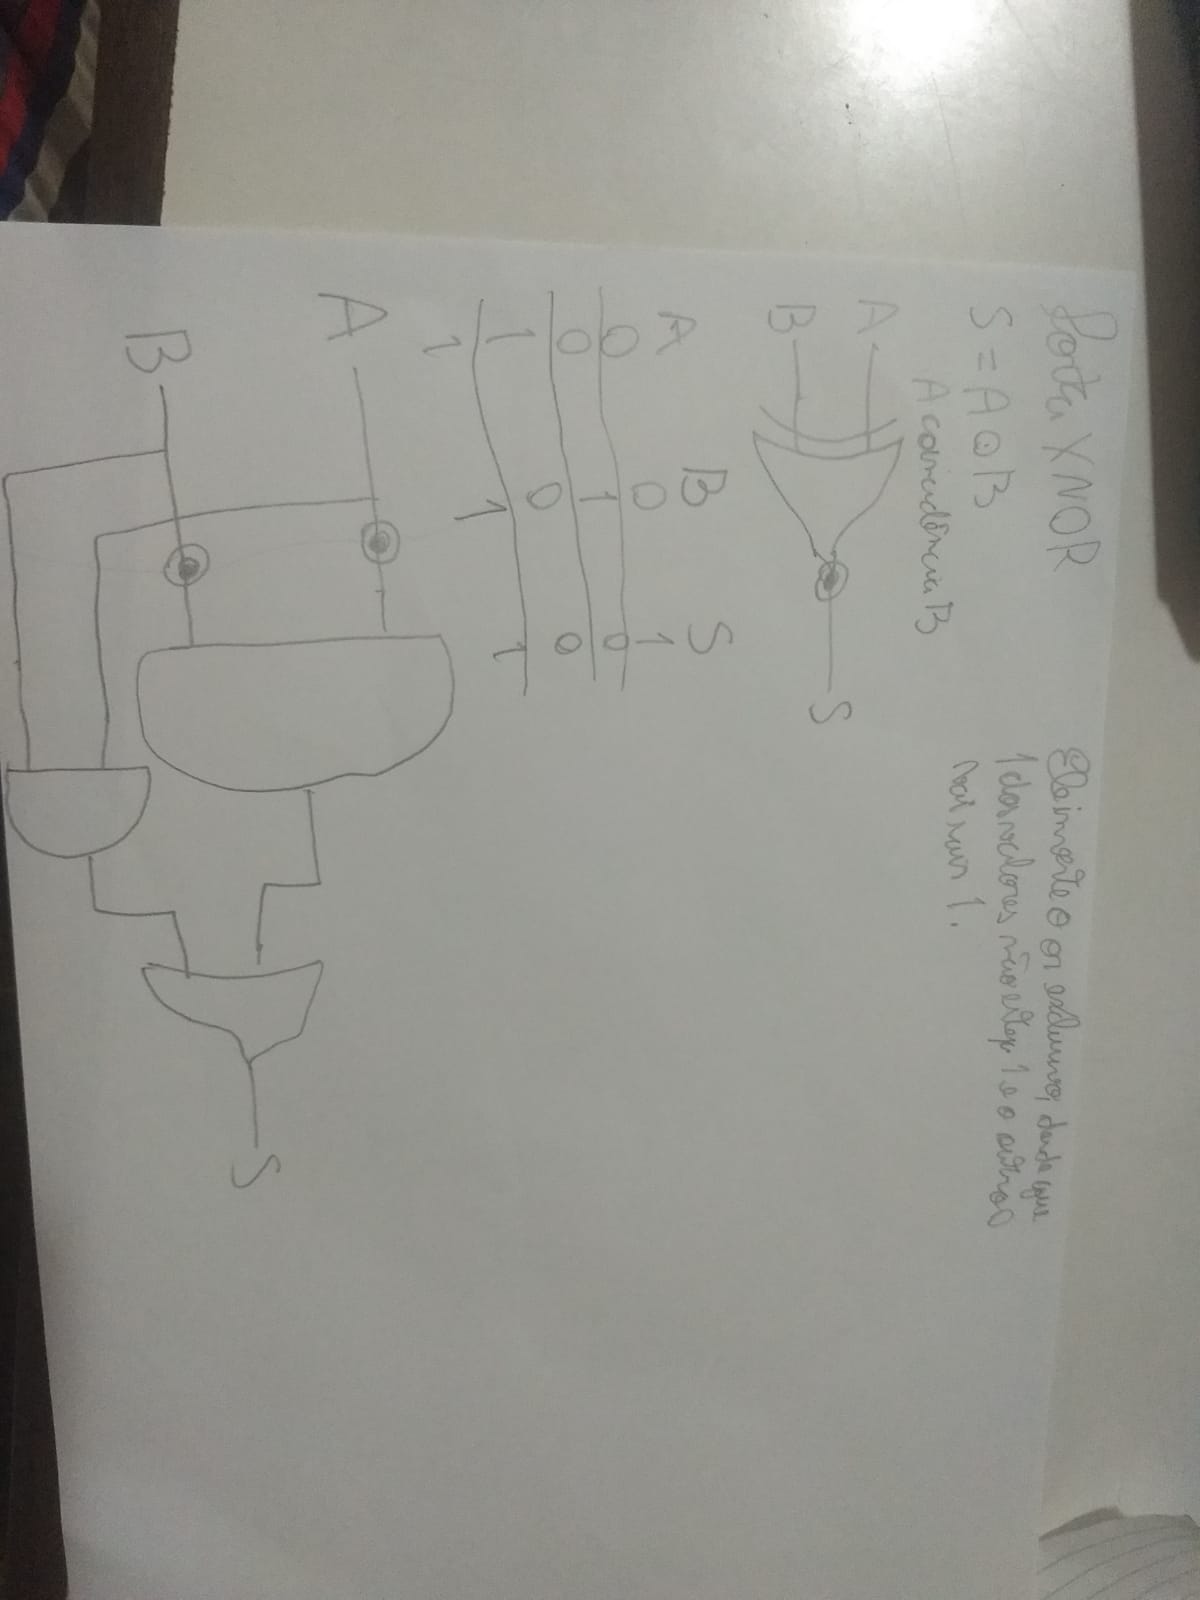 Porta XNOR
S = A ⊙ B
A coincidência B
Ele inverte o ou exclusivo, desde que
1 dos valores não esteja 1 e o outro 0
vai sair 1.
A
B
S
A B S
0 0 1
0 1 0
1 0 0
1 1 1
A
B
S